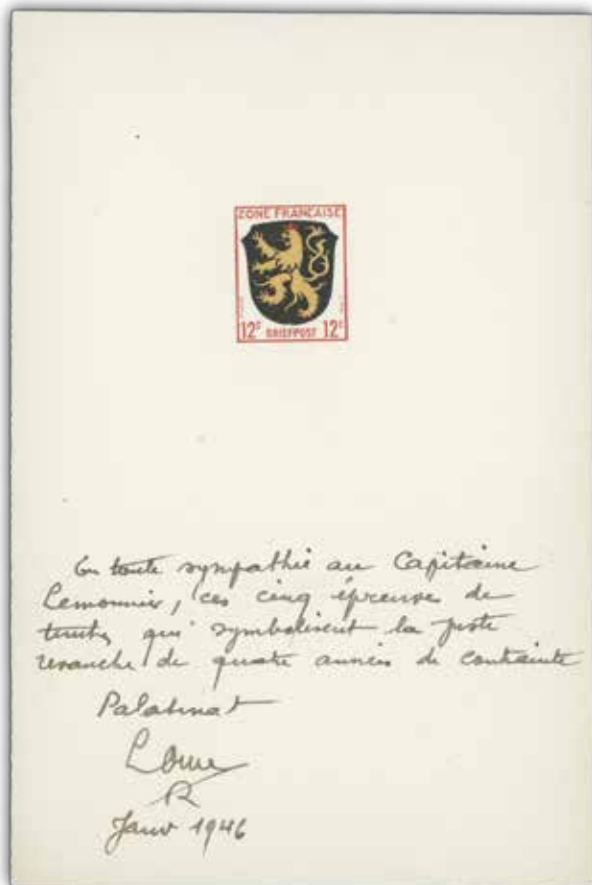 ZONE FRANÇAISE
12ᶠ BRIEFPOST 12ᶠ
En toute sympathie au Capitaine
Lemonnier, ces cinq épreuves de
qui symbolisent la juste
revanche de quatre années de contrainte
Palatinat
Janv 1946